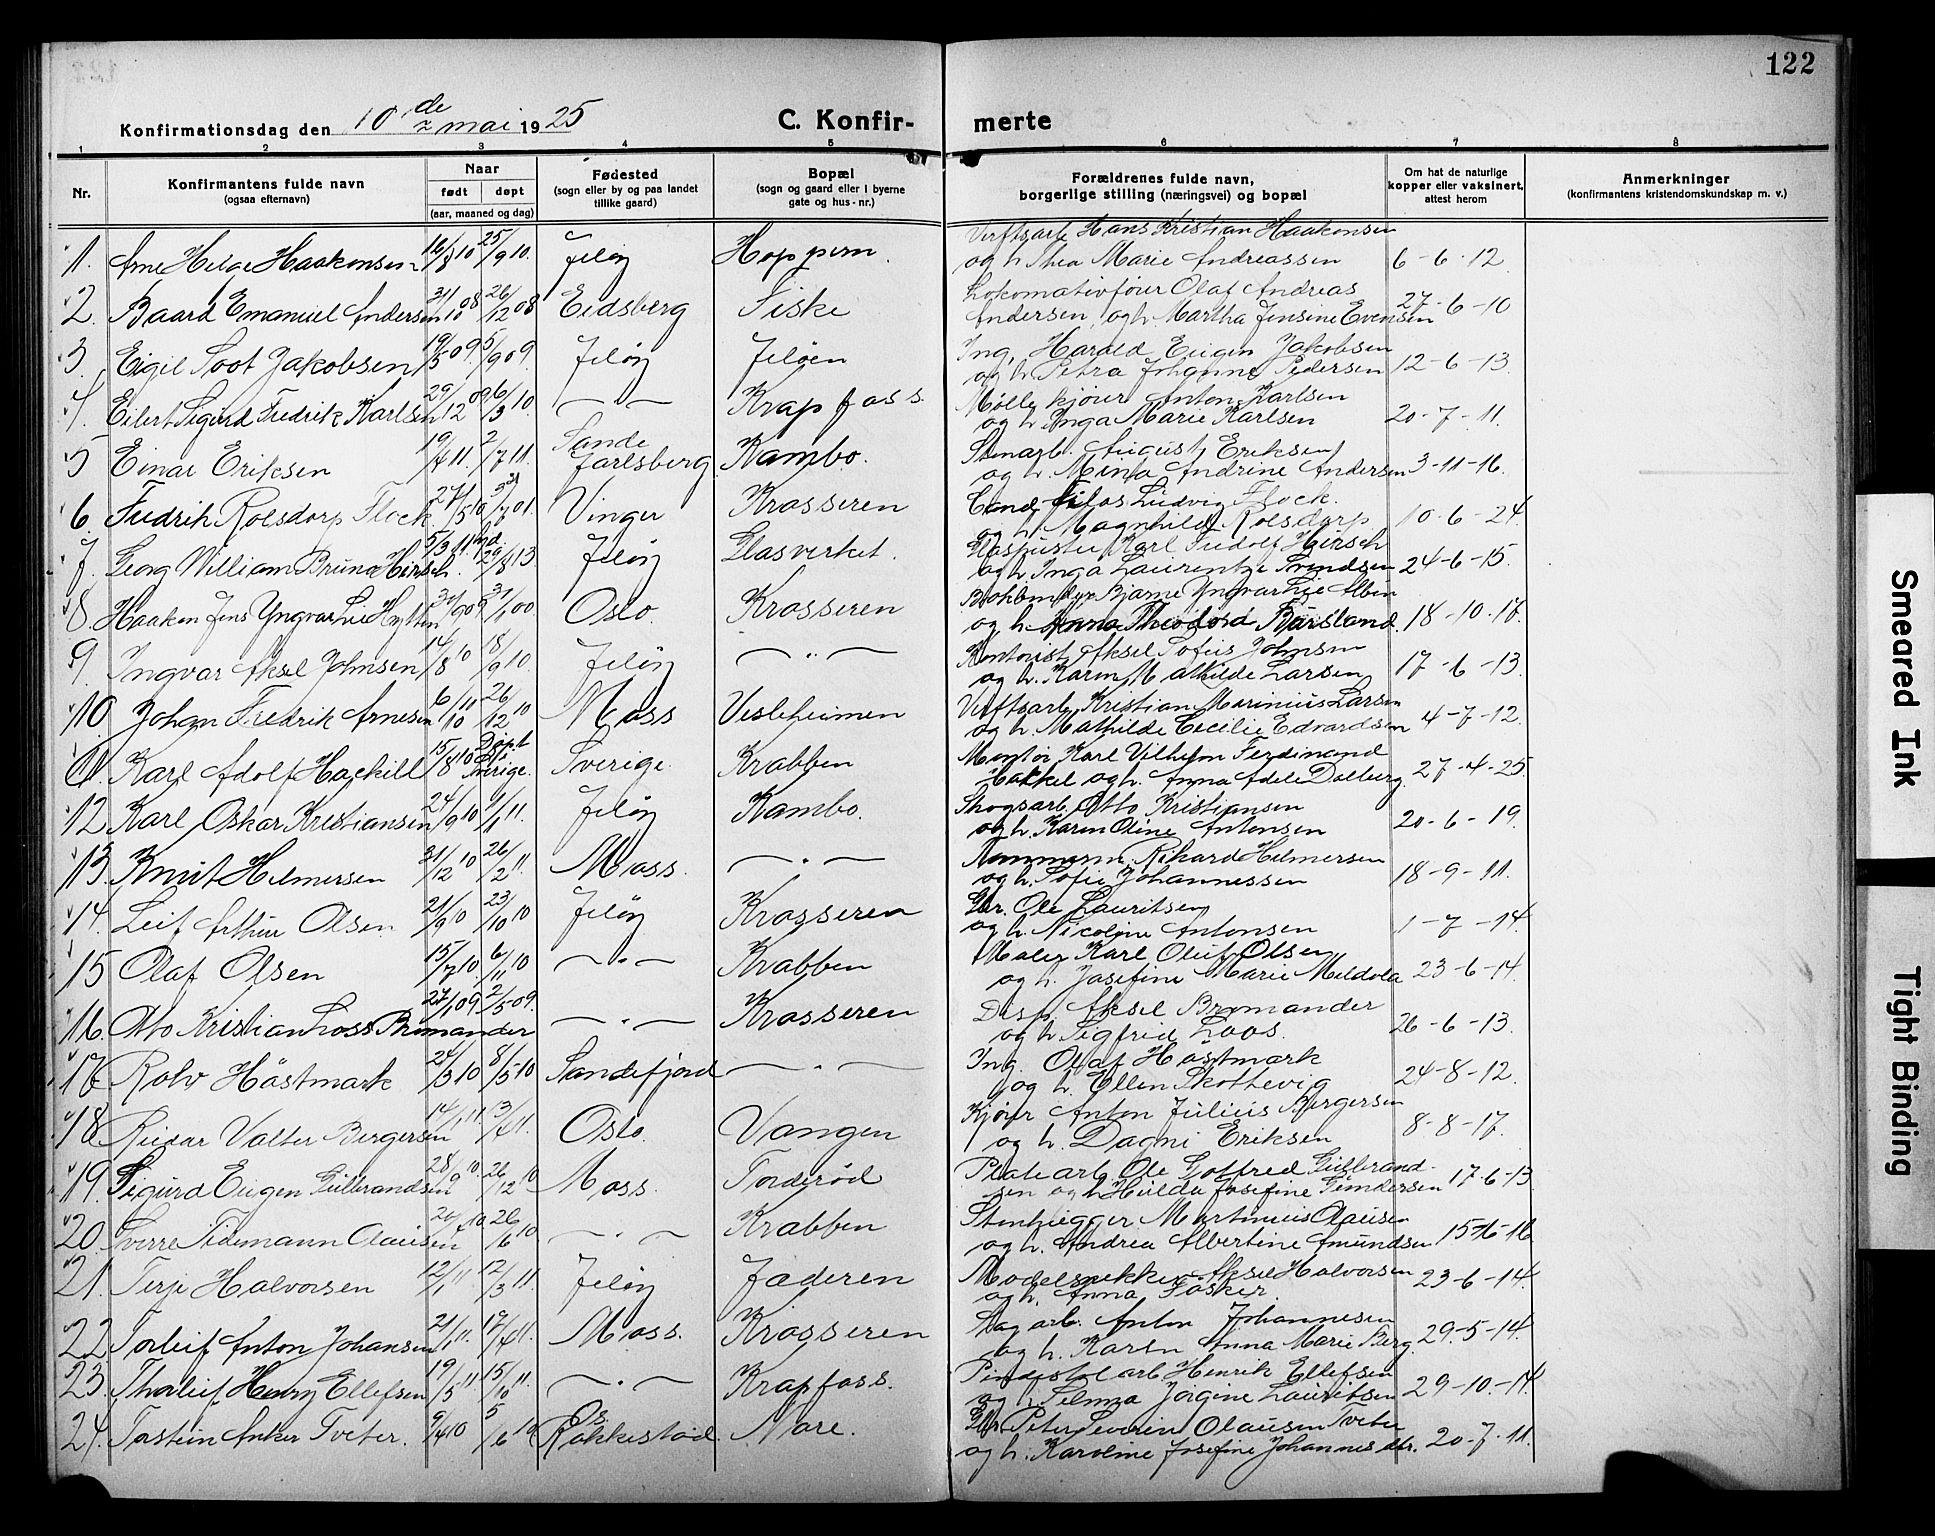 122
Konfirmationsdag den 10 de mai 1925
C. Konfirmerte
1 2 3 4 5 6 7 8
Nr.
Konfirmantens fulde navn
(ogsaa efternavn)
Naar
født døpt
(aar, maaned og dag)
Fødested
(sogn eller by og paa landet
tillike gaard)
Bopæl
(sogn og gaard eller i byerne
gate og hus-nr.)
Forældrenes fulde navn,
borgerlige stilling (næringsvei) og bopæl
Om hat de naturlige
kopper eller vaksinert,
attest herom
Anmerkninger
(konfirmantens kristendomskundskap m. v.)
1. Arne Helge Haakonsen 16/8 10 25/9 10. Jeløy Hoppern. Verftsarb. Hans Kristian Haakonsen
og h. Thea Marie Andreassen 6-6-12
2. Baard Emanuel Andersen 31/10 08 26/12 08 Eidsberg Fiske Lokomotivfører Olaf Andreas
Andersen og h. Martha Jensine Evensen 27-6-10
3. Eigil Soot Jakobsen 19/5 09 5/9 09. Jeløy Jeløen Ing. Harald Eugen Jakobsen
og h. Petra Johanne Pedersen 12-6-13.
4. Eilert Sigurd Fredrik Karlsen 29/12 09 6/3 10 — — Krapfoss Møllekjører Anton Karlsen
og h. Inga Marie Karlsen 20-7-11.
5 Einar Eriksen 19/4 11. 2/7 11. Sande Jarlsberg Kambo. Stenarb. August Eriksen
og h. Mina Andrine Andersen 3-11-16.
6. Fredrik Roësdorp Flock Vinger Krosseren Cand. filos Ludvig Flock.
og h. Magnhild Roësdorp 10-6-24.
7. Georg William Bruno Hirsch. 5/3 11 29/8 13 Jeløy Glasverket. Glaspuster Karl Fridolf Hirsch
og h. Inga Laurentze Svendsen 24-6-15.
8. Haakon Jens Yngvar Lie Oslo. Krosseren Bokbinder Bjarne Yngvar Lie
og h. Anna Theodora 18-10-17.
9. Ingvar Aksel Johnsen 14/8 10 18/9 10. Jeløy — " — Kontorist Aksel Sofus Johnsen
og h. Karen Mathilde Larsen 17-6-13.
10. Johan Fredrik Arnesen 6/10 10 26/12 10 Moss Vesleheimen Verftsarb. Kristian Marinius Larsen
og h. Mathilde Cecilie Edvardsen 4-7-12.
11. Karl Adolf Hackill 15/8 10 Døpt i Sverige. Sverige. Krabben Montør Karl Vilhelm Ferdinand
Hakkel og h. Anna Adele Dalberg. 27-4-25.
12 Karl Oskar Kristiansen 24/9 10 1/1 11. Jeløy Kambo. Skogsarb. Otto Kristiansen
og h. Karen Oline Antonsen 20-6-19.
13. Knut Helmersen 31/12 10 26/2 11. Moss. — " — Rikard Helmersen
og h. Sofie Johannessen 18-9-11.
14. Leif Arthur Olsen. 21/9 10 23/10 10 Jeløy Krosseren Gbr. Ole Lauritsen
og h. Nicoline Antonsen 1-7-14.
15 Olaf Olsen 15/7 10. 6/11 10 — " — Krabben Maler Karl Oluf Olsen
og h. Josefine Marie Mildola 23-6-14.
16. Otto Kristian Loos Bromander 27/1 09. 2/5 09. — " — Krosseren Disp. Aksel Bromander
og h. Sigfrid Loos. 26-6-13.
17. Rolv Håstmark 27/3 10 8/5 10 Sandefjord — " — Ing. Olaf Hastmark
og h. Ellen Skottevig 24-8-12.
18. Reidar Valter Bergersen 14/1 11. 13/4 11. Oslo. Vangen Kjører Anton Julius Bergersen
og h. Dagni Eriksen 8-8-17.
19. Sigurd Eugen Gulbrandsen 28/9 10. 26/12 10 Moss. Torderød Platearb. Ole Gotfred Gulbrand-
sen og h. Hulda Josefine Gundersen 17-6-13.
20. Sverre Tidemann Olausen 26/6 10 — " — Krabben Stenhugger Martinius Olausen
og h. Andrea Albertine Amundsen 15-6-16
21. Terje Halvorsen 12/1 11. 12/3 11. Jeløy Jæderen Modelsnekker Aksel Halvorsen
og h. Anna Fosker. 23-6-14.
22. Torleif Anton Johansen 21/1 11. 17/4 11. Moss. Krosseren Sagarb. Anton Johannesen
og h. Karen Anna Marie Berg. 29-5-14.
23. Thorleif Henry Ellefsen 19/5 11 15/10 11. — " — Krapfoss. Henrik Ellefsen
og h. Selma Jørgine Lauritsen 29-10-14
24. Torstein Anker Tveter. 9/4 10 5/6 10 Os. Rakkestad Nore. Gbr. Peter Severin Olausen Tveter
og h. Karoline Josefine Johannesdtr. 20-7-11.
Smeared Ink
Tight Binding